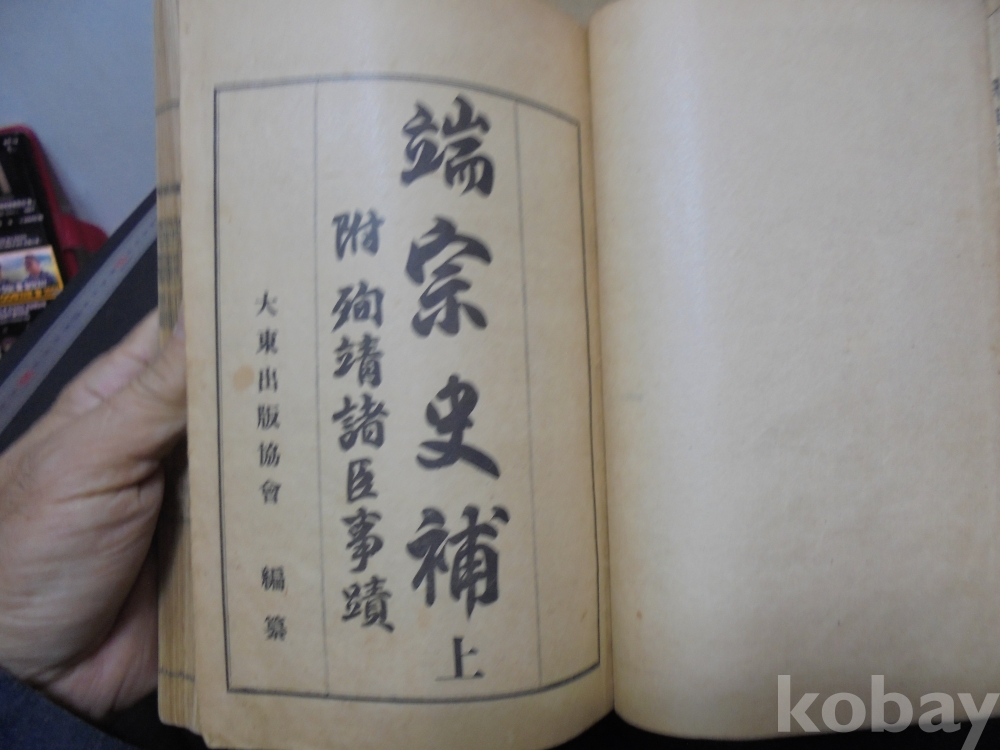 端宗史補上
附 殉靖諸臣事蹟
大東出版協會 編纂
kobay